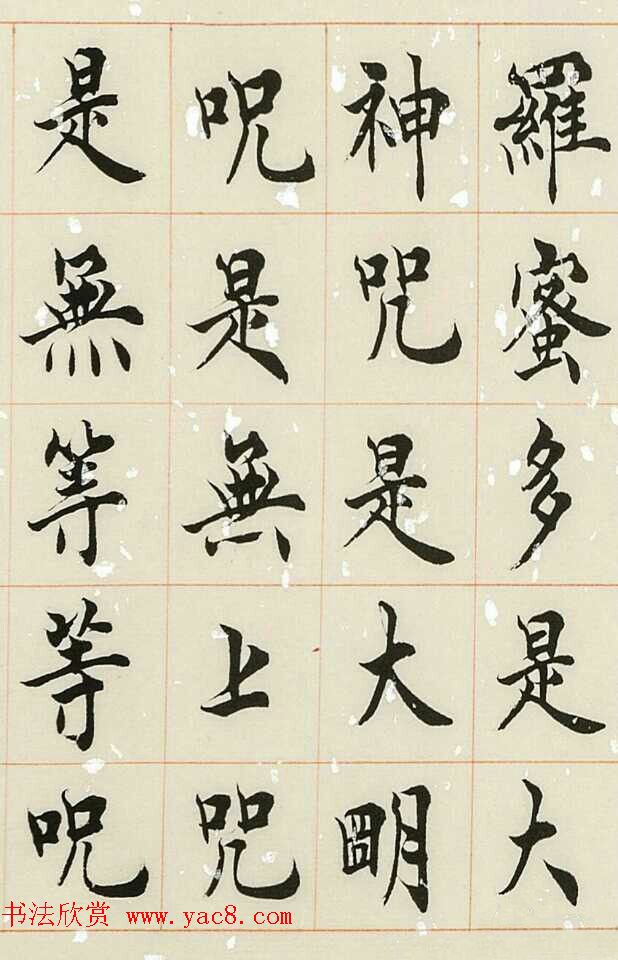 羅蜜多是大
神咒是大朙
呪是無上咒
是無等等呪
书法欣赏 www.yac8.com